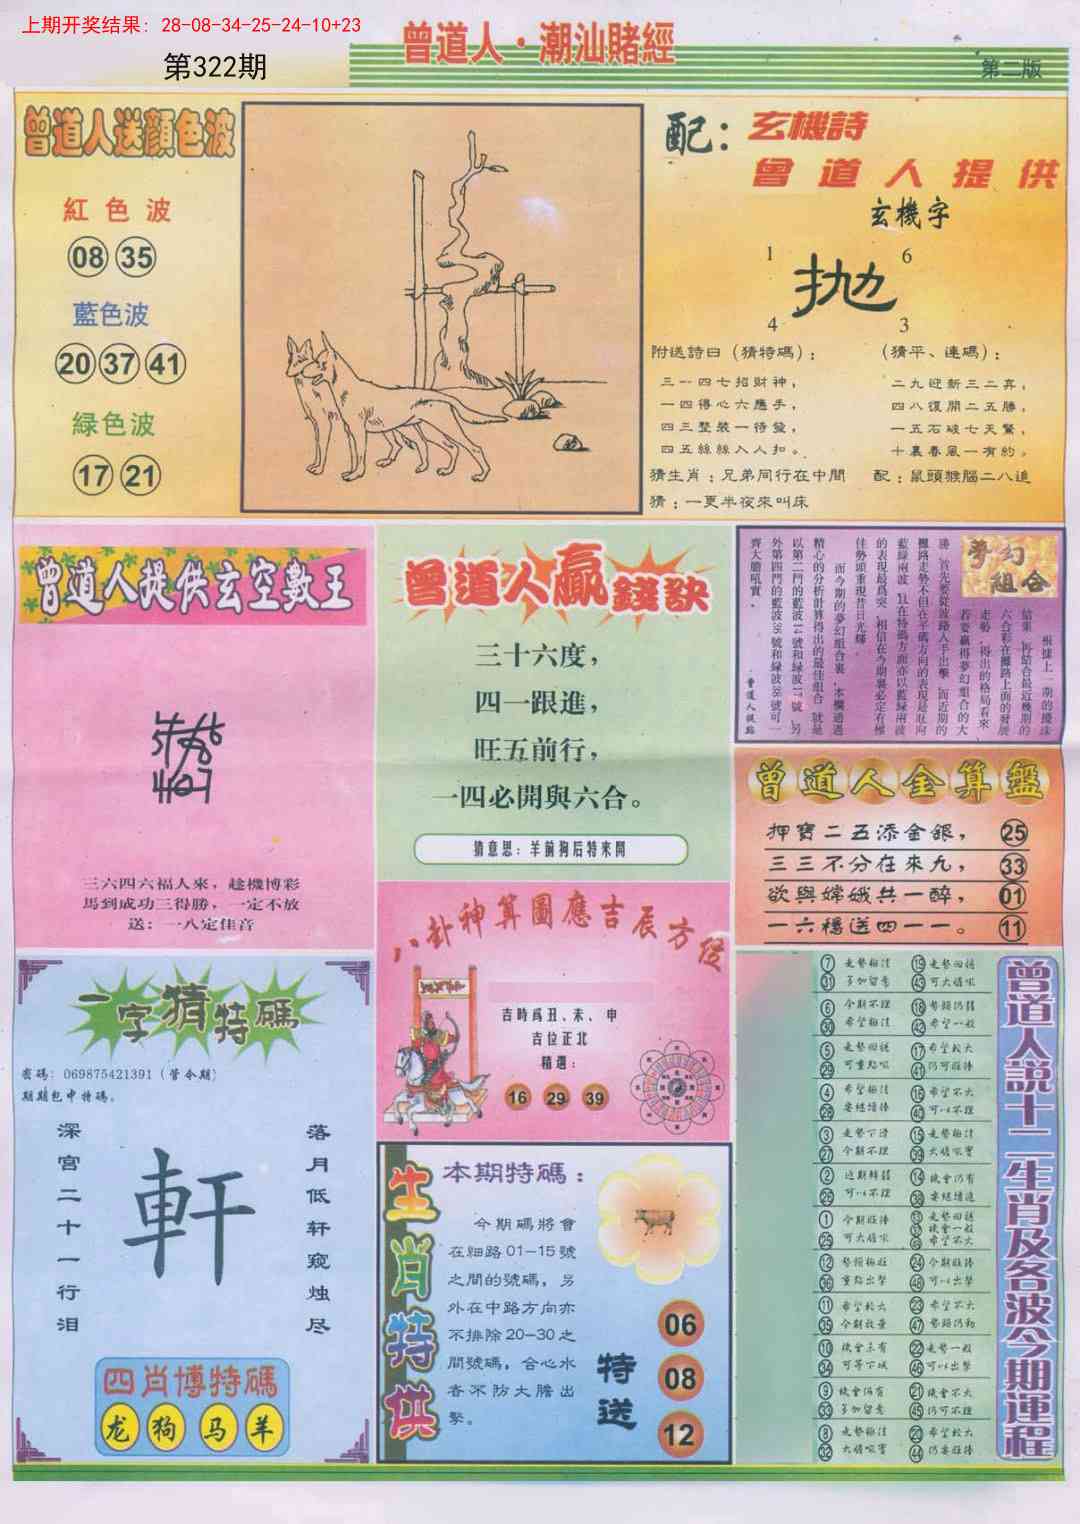 上期开奖结果: 28-08-34-25-24-10+23
第322期
曾道人·潮汕賭經
第二版
曾道人送顏色波
紅色波
08 35
藍色波
20 37 41
綠色波
17 21
配:
玄機詩
曾道人提供
玄機字
1 6
拋
4 3
附送詩曰（猜特碼）:
三一四七招財神,
一四得心六應手,
四三整裝一待發,
四五絲絲入人扣。
（猜平、連碼）:
二九迎新三二弃,
四八復開二五勝,
一五石破七天驚,
十裏春風一有約。
猜生肖:兄弟同行在中間
配:鼠頭猴腦二八追
猜:一更半夜來叫床
曾道人提供玄空數王
三六四六福人來, 趁機博彩
馬到成功三得勝, 一定不放
送: 一八定佳音
曾道人贏錢訣
三十六度,
四一跟進,
旺五前行,
一四必開與六合。
猜意思: 羊前狗后特來開
夢幻組合
根據上一期的攪珠
結果,再結合最近幾期的
六合彩在攤路上面的發展
走勢,得出的格局看來,
若要贏得夢幻組合的大
勝,首先要從波路入手出擊,而近期的
攤路走勢不但在平碼方向的表現是旺向
藍綠兩波,且在特碼方面亦以藍綠兩波
的表現最爲突,相信在今期裏必定有極
佳勢頭重現昔日光輝。
而今期的夢幻組合裏,本欄通過
精心的分析計算得出的最佳組合,就是
以第二門的藍波14號和綠波17號,另
外第四門的藍波36號和綠波38號可一
齊大膽吼實。
曾道人供路
曾道人金算盤
押寶二五添金銀, 25
三三不分在來九, 33
欲與嫦娥共一醉, 01
一六穩送四一一。 11
八卦神算圖應吉辰方位
吉時爲丑、未、申
吉位正北
精選:
16 29 39
一字猜特碼
密碼: 069875421391（管令期）
期期包中特碼。
深宮二十一行泪
軒
落月低轩窥烛尽
四肖博特碼
龙 狗 马 羊
生肖特供
本期特碼:
今期碼將會
在細路01-15號
之間的號碼, 另
外在中路方向亦
不排除20-30之
間號碼, 合心水
者不防大膽出
擊。
特送
06
08
12
曾道人說十二生肖及各波今期運程
7 31 走勢極佳 多加留意
19 43 走勢回穩 可大膽吼
6 30 今期不理 希望極佳
18 42 勢頭仍弱 希望一般
5 29 走勢回穩 可重點吼
17 41 希望較大 仍可旺捧
4 28 希望極佳 要繼續捧
16 40 希望不大 可以不理
3 27 走勢下滑 今期不理
15 39 走勢極佳 大膽吼實
2 26 近期轉弱 可以不理
14 38 機會仍有 要繼續追
1 25 今期旺捧 可大膽吼
13 37 49 走勢回穩 機會一般 希望不大
12 36 勢頭極旺 重點出擊
24 48 今期旺捧 可以出擊
11 35 希望較大 今期放量
23 47 希望不大 勢頭仍動
10 34 機會示有 可等下城
22 46 走勢一般 可以出擊
9 33 機會仍有 多加留意
21 45 機會不大 仍可不理
8 32 走勢極佳 大膽吼實
20 44 希望較大 仍要旺捧